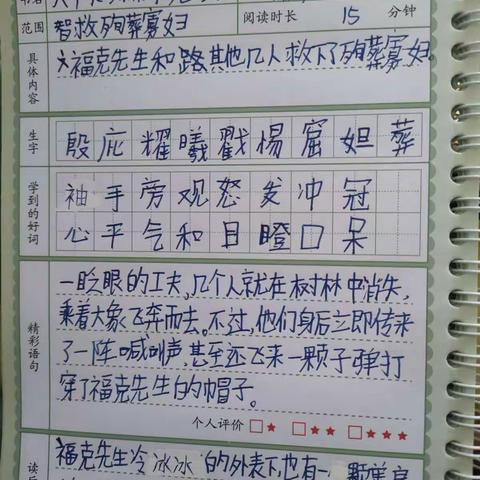 范围 智救殉葬寡妇 阅读时长 15 分钟
具体内容
福克先生和路其他几人救下了殉葬寡妇。
生字
殷庇耀曦戳惕窟妲葬
学到的好词
袖手旁观怒发冲冠
心平气和目瞪口呆
精彩语句
一眨眼的工夫,几个人就在树林中消失,
乘着大象飞奔而去。不过,他们身后立即传来
了一阵喊叫声,甚至还飞来一颗子弹打
穿了福克先生的帽子。
个人评价 □★ □★★ □★★★
福克先生冷冰冰的外表下,也有一颗